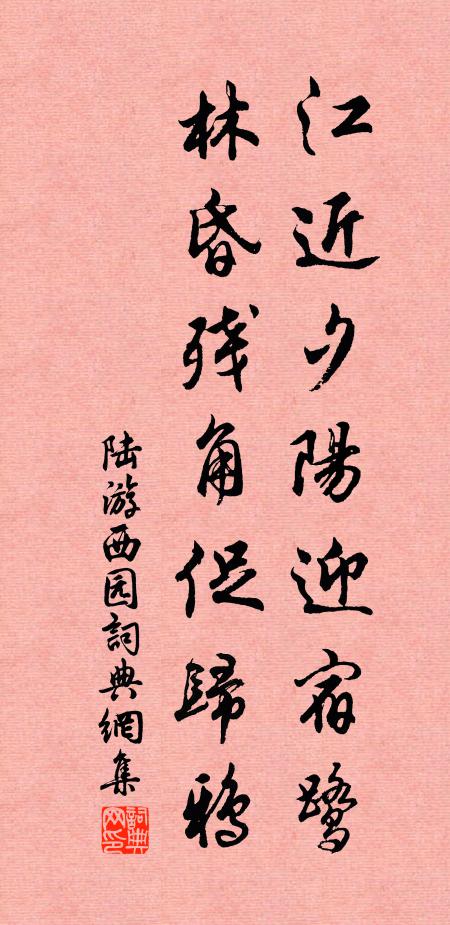 江近夕陽迎宿鷺
林昏残角促歸鴉
陆游西园詞典網集
詞典网印